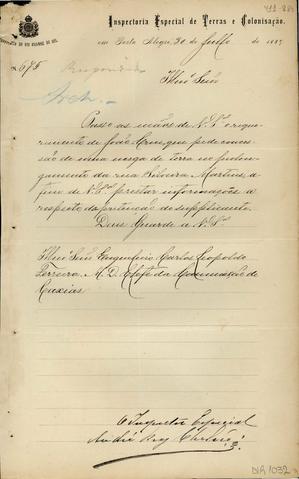 Inspectoria Especial de Terras e Colonisação.
em Porto Alegre, 20 de Julho de 188
N. 675 Respondido
Arch.
Illmo Snr.
Passo ás mãos de V. Sª o reque-
rimento de João Cruz, que pede conces-
são de uma nesga de terra no prolon-
gamento da rua Silveira Martins, a
fim de V. Sª prestar informações a
respeito da pretenção do supplicante.
Deus Guarde a V. Sª
Illmo Snr. Engenheiro Carlos Leopoldo
Ferreira, M. D. Chefe da Commissão de
Caxias
O Inspector Especial
DIR 1032